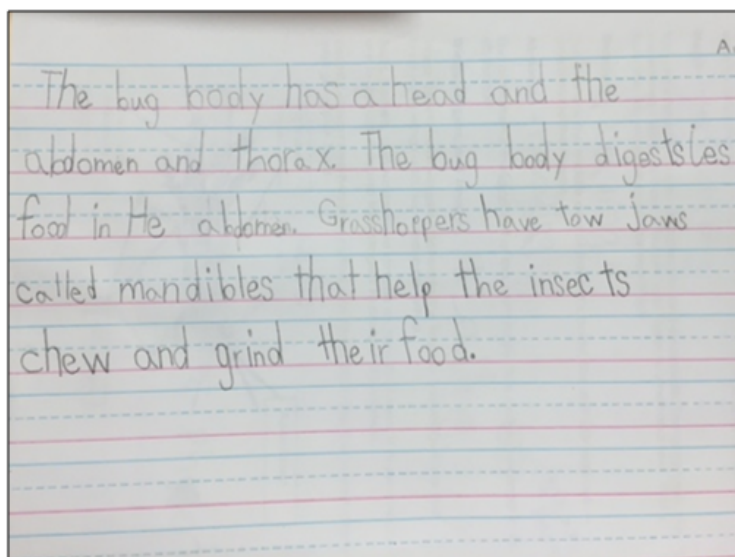 A.
The bug body has a head and the
abdomen and thorax. The bug body digests ies
food in He abdomen. Grasshoppers have tow jaws
called mandibles that help the insects
chew and grind their food.